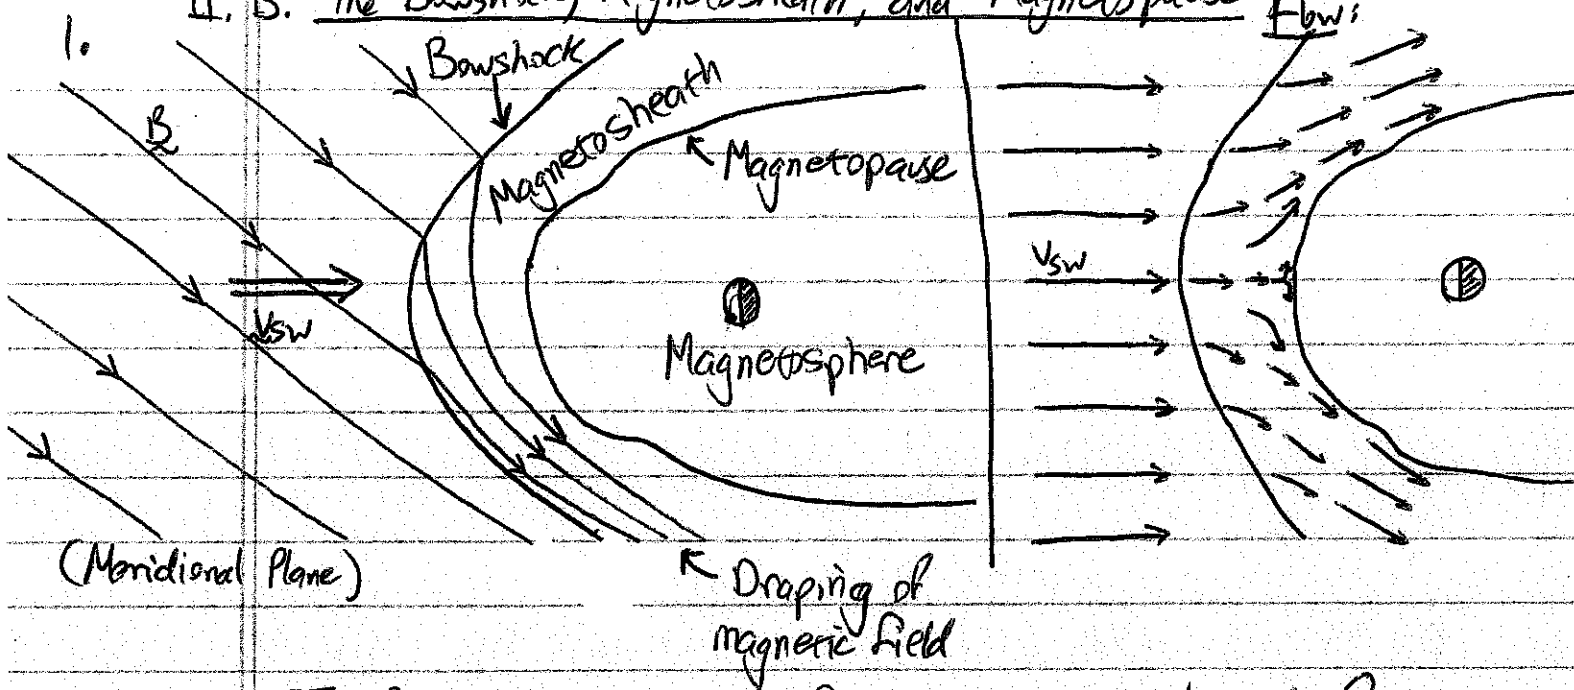 II. B. The Bowshock, Magnetosheath, and Magnetopause
Flow:
1.
Bowshock
Magnetosheath
B
Magnetopause
Vsw
Magnetosphere
(Meridional Plane)
Draping of
magnetic field
Vsw